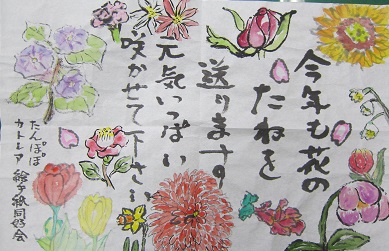 今年も花の
たねを
送ります
元気いっぱい
咲かせて下さい
たんぽぽ
カトレア 絵手紙同好会